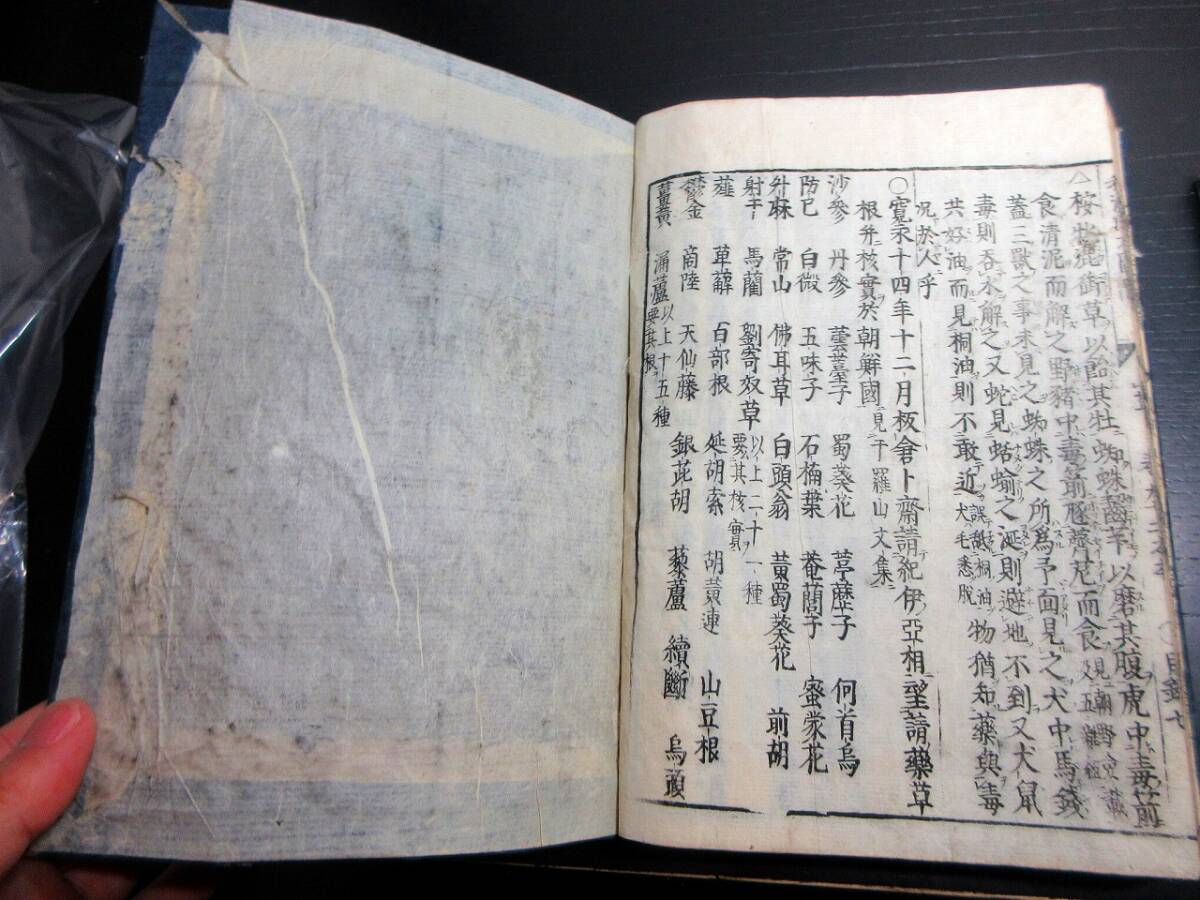 △按物麀銜草以飴其牡蜘蛛齧芋以磨其腹虎中毒箭
食清泥而解之野猪中毒箭豗薺苨而食見朝野僉載及五雜組
蓋三獸之事未見之蜘蛛之所為予面見之犬中馬錢
毒則呑水解之又蛇見蛞蝓之涎則避地不到又犬鼠
共好油而見桐油則不敢近誤舐桐油犬毛悉脫物猶知藥與毒
况於人乎
○寬永十四年十二月板倉卜齋請紀伊亞相望請藥草
根幷核實於朝鮮國見于羅山文集
沙參 丹參 蕓薹子 蜀葵花 葶藶子 何首烏
防已 白微 五味子 石楠葉 菴䕡子 蜜蒙花
升麻 常山 佛耳草 白頭翁 黃蜀葵花 前胡
射干 馬藺 劉寄奴草 以上二十一種要其核實
薤 萆薢 百部根 延胡索 胡黃連 山豆根
欝金 商陸 天仙藤 銀茈胡 藜蘆 續斷 烏頭
薑黃 漏蘆 以上十五種要其根